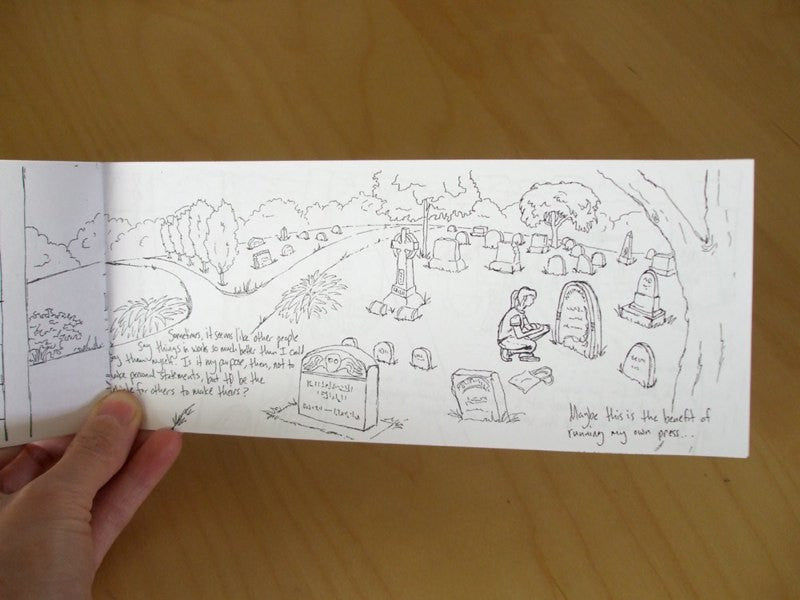 Sometimes, it seems like other people
say things in works so much better than I could
say them myself. Is it my purpose, then, not to
make personal statements, but to be the
for others to make theirs?
Maybe this is the benefit of
running my own press...